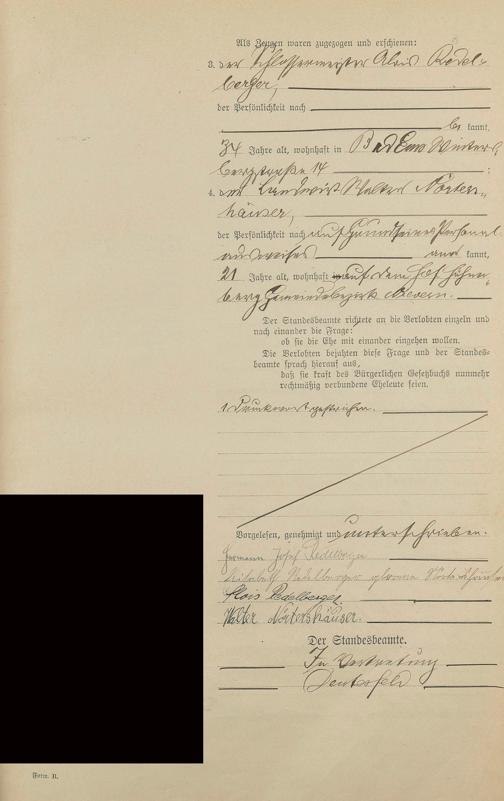 Als Zeugen waren zugezogen und erschienen:
3. der Schlossermeister Alois Redel-
berger,
der Persönlichkeit nach
be kannt,
34 Jahre alt, wohnhaft in Bad Ems Winters-
bergstraße 14
4. der Landwirt Walter Nörters-
häuser,
der Persönlichkeit nach auf Grund seines Personal
ausweises aner kannt,
21 Jahre alt, wohnhaft in auf dem Hof Hühner-
berg Gemeindebezirk Nievern.
Der Standesbeamte richtete an die Verlobten einzeln und
nach einander die Frage:
ob sie die Ehe mit einander eingehen wollen.
Die Verlobten bejahten diese Frage und der Standes-
beamte sprach hierauf aus,
daß sie kraft des Bürgerlichen Gesetzbuchs nunmehr
rechtmäßig verbundene Eheleute seien.
1 Druckwort gestrichen.
Vorgelesen, genehmigt und unterschrieben.
Hermann Josef Redelberger
Elisabeth Redelberger geborene Nörtershäuser
Alois Redelberger
Walter Nörtershäuser.
Der Standesbeamte.
In Vertretung
Form. B.